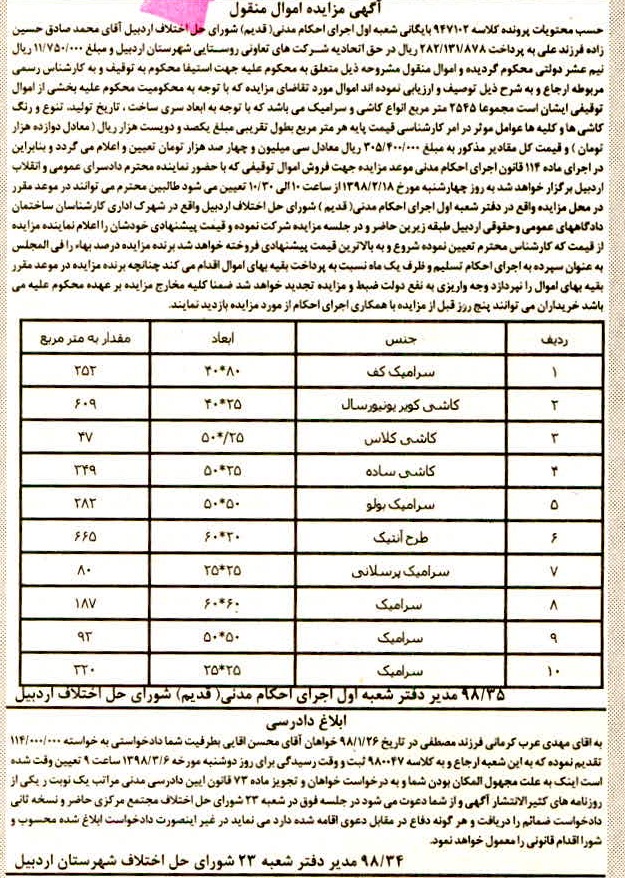 آگهی مزایده اموال منقول
حسب محتویات پرونده کلاسه ۹۴۷۱۰۲ بایگانی شعبه اول اجرای احکام مدنی( قدیم) شورای حل اختلاف اردبیل آقای محمد صادق حسین
زاده فرزند علی به پرداخت ۲۸۲/۱۳۱/۸۷۸ ریال در حق اتحادیه شرکت های تعاونی روستایی شهرستان اردبیل و مبلغ ۱۱/۷۵۰/۰۰۰ ریال
نیم عشر دولتی محکوم گردیده و اموال منقول مشروحه ذیل متعلق به محکوم علیه جهت استیفا محکوم به توقیف و به کارشناس رسمی
مربوطه ارجاع و به شرح ذیل توصیف و ارزیابی نموده اند اموال مورد تقاضای مزایده که با توجه به محکومیت محکوم علیه بخشی از اموال
توقیفی ایشان است مجموعا ۲۵۴۵ متر مربع انواع کاشی و سرامیک می باشد که با توجه به ابعاد سری ساخت ، تاریخ تولید، تنوع و رنگ
کاشی ها و کلیه ها عوامل موثر در امر کارشناسی قیمت پایه هر متر مربع بطول تقریبی مبلغ یکصد و دویست هزار ریال ( معادل دوازده هزار
تومان ) و قیمت کل مقادیر مذکور به مبلغ ۳۰۵/۴۰۰/۰۰۰ ریال معادل سی میلیون و چهار صد هزار تومان تعیین و اعلام می گردد و بنابراین
در اجرای ماده ۱۱۴ قانون اجرای احکام مدنی موعد مزایده جهت فروش اموال توقیفی که با حضور نماینده محترم دادسرای عمومی و انقلاب
اردبیل برگزار خواهد شد به روز چهارشنبه مورخ ۱۳۹۸/۲/۱۸ از ساعت ۱۰ الی ۱۰/۳۰ تعیین می شود طالبین محترم می توانند در موعد مقرر
در محل مزایده واقع در دفتر شعبه اول اجرای احکام مدنی( قدیم ) شورای حل اختلاف اردبیل واقع در شهرک اداری کارشناسان ساختمان
دادگاههای عمومی وحقوقی اردبیل طبقه زیرین حاضر و در جلسه مزایده شرکت نموده و قیمت پیشنهادی خودشان را اعلام نماینده مزایده
از قیمت که کارشناس محترم تعیین نموده شروع و به بالاترین قیمت پیشنهادی فروخته خواهد شد برنده مزایده درصد بهاء را فی المجلس
به عنوان سپرده به اجرای احکام تسلیم و ظرف یک ماه نسبت به پرداخت بقیه بهای اموال اقدام می کند چنانچه برنده مزایده در موعد مقرر
بقیه بهای اموال را نپردازد وجه واریزی به نفع دولت ضبط و مزایده تجدید خواهد شد ضمنا کلیه مخارج مزایده بر عهده محکوم علیه می
باشد خریداران می توانند پنج روز قبل از مزایده با همکاری اجرای احکام از مورد مزایده بازدید نمایند.
ردیف جنس ابعاد مقدار به متر مربع
۱ سرامیک کف ۸۰*۴۰ ۲۵۲
۲ کاشی کویر یونیورسال ۲۵*۴۰ ۶۰۹
۳ کاشی کلاس ۲۵/*۵۰ ۴۷
۴ کاشی ساده ۲۵*۵۰ ۳۴۹
۵ سرامیک بولو ۵۰*۵۰ ۲۸۲
۶ طرح آنتیک ۲۰*۶۰ ۶۶۵
۷ سرامیک پرسلانی ۲۵*۲۵ ۸۰
۸ سرامیک ۶۰*۶۰ ۱۸۷
۹ سرامیک ۵۰*۵۰ ۹۲
۱۰ سرامیک ۲۵*۲۵ ۳۲۰
۹۸/۳۵ مدیر دفتر شعبه اول اجرای احکام مدنی( قدیم) شورای حل اختلاف اردبیل
ابلاغ دادرسی
به اقای مهدی عرب کرمانی فرزند مصطفی در تاریخ ۹۸/۱/۲۶ خواهان آقای محسن اقایی بطرفیت شما دادخواستی به خواسته ۱۱۴/۰۰۰/۰۰۰
تقدیم نموده که به این شعبه ارجاع و به کلاسه ۹۸۰۰۴۷ ثبت و وقت رسیدگی برای روز دوشنبه مورخه ۱۳۹۸/۳/۶ ساعت ۹ تعیین وقت شده
است اینک به علت مجهول المکان بودن شما و به درخواست خواهان و تجویز ماده ۷۳ قانون ایین دادرسی مدنی مراتب یک نوبت ر یکی از
روزنامه های کثیرالانتشار آگهی و از شما دعوت می شود در جلسه فوق در شعبه ۲۳ شورای حل اختلاف مجتمع مرکزی حاضر و نسخه ثانی
دادخواست ضمائم را دریافت و هر گونه دفاع در مقابل دعوی اقامه شده دارد می نماید در غیر اینصورت دادخواست ابلاغ شده محسوب و
شورا اقدام قانونی را معمول خواهد نمود.
۹۸/۳۴ مدیر دفتر شعبه ۲۳ شورای حل اختلاف شهرستان اردبیل